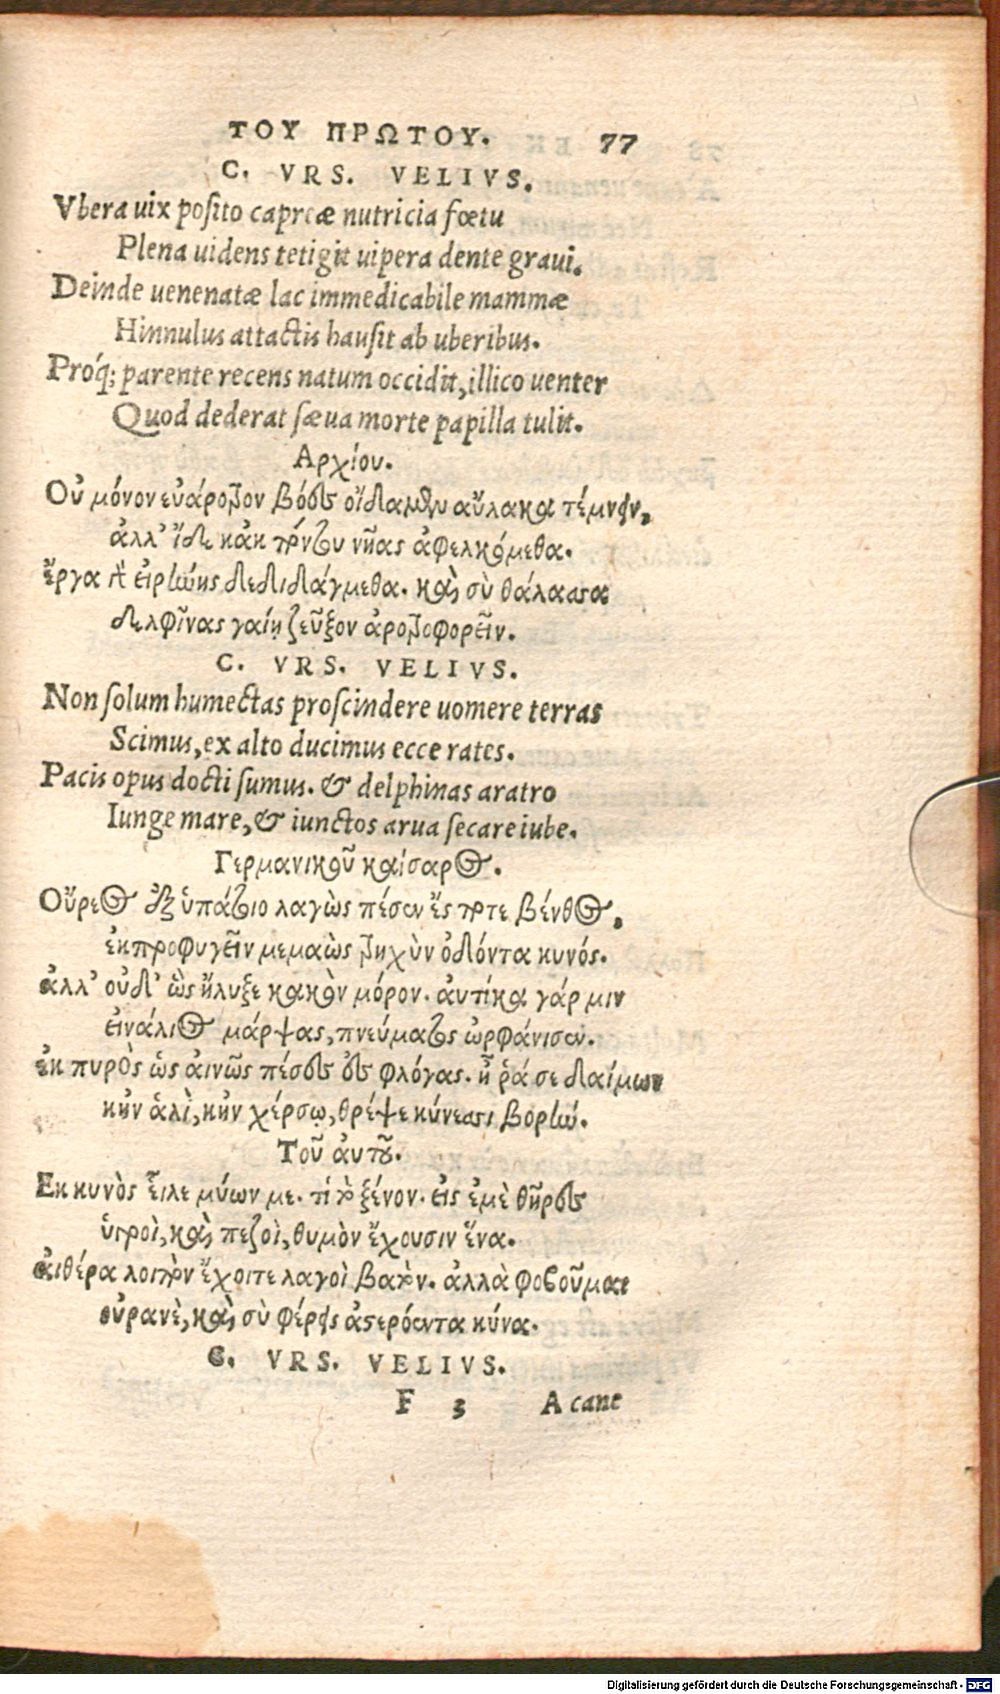 ΤΟΥ ΠΡΩΤΟΥ. 77
C. VRS. VELIVS.
Vbera uix posito capreæ nutricia fœtu
Plena uidens tetigit uipera dente graui.
Deinde uenenatæ lac immedicabile mammæ
Hinnulus attactis hausit ab uberibus.
Próq; parente recens natum occidit, illico uenter
Quod dederat sæua morte papilla tulit.
Αρχίου.
Οὐ μόνον εὐάροτρον βόες οἴδαμεν αὔλακα τέμνειν,
ἀλλ' ἴδε κἀκ πόντου νῆας ἀφελκόμεθα.
ἔργα γὰρ εἰρήνης δεδιδάγμεθα. καὶ σὺ θάλασσα
δελφῖνας γαίῃ ζεῦξον ἀροτροφορεῖν.
C. VRS. VELIVS.
Non solum humectas proscindere uomere terras
Scimus, ex alto ducimus ecce rates.
Pacis opus docti sumus. & delphinas aratro
Iunge mare, & iunctos arua secare iube.
Γερμανικοῦ καίσαρος.
Οὔρεος ἐξ ὑπάτοιο λαγὼς πέσεν ἔς ποτε βένθος,
ἐκπροφυγεῖν μεμαὼς τρηχὺν ὀδόντα κυνός.
ἀλλ' οὐδ' ὣς ἤλυξε κακὸν μόρον. ἀυτίκα γάρ μιν
εἰνάλιος μάρψας, πνεύματος ὠρφάνισεν.
ἐκ πυρὸς ὡς ἀινῶς πέσες ἐς φλόγας. ἦ ῥά σε δαίμων
κῂν ἁλὶ, κῂν χέρσῳ, θρέψε κύνεσσι βορήν.
Τοῦ ἀυτοῦ.
Εκ κυνὸς εἷλε κύων με. τί τὸ ξένον. εἰς ἐμὲ θῆρες
ὑγροὶ, καὶ πεζοὶ, θυμὸν ἔχουσιν ἕνα.
ἀιθέρα λοιπὸν ἔχοιτε λαγοὶ βατόν. ἀλλὰ φοβοῦμαι
οὐρανὲ, καὶ σὺ φέρεις ἀστερόεντα κύνα.
C. VRS. VELIVS.
F 3 A cane
Digitalisierung gefördert durch die Deutsche Forschungsgemeinschaft - DFG